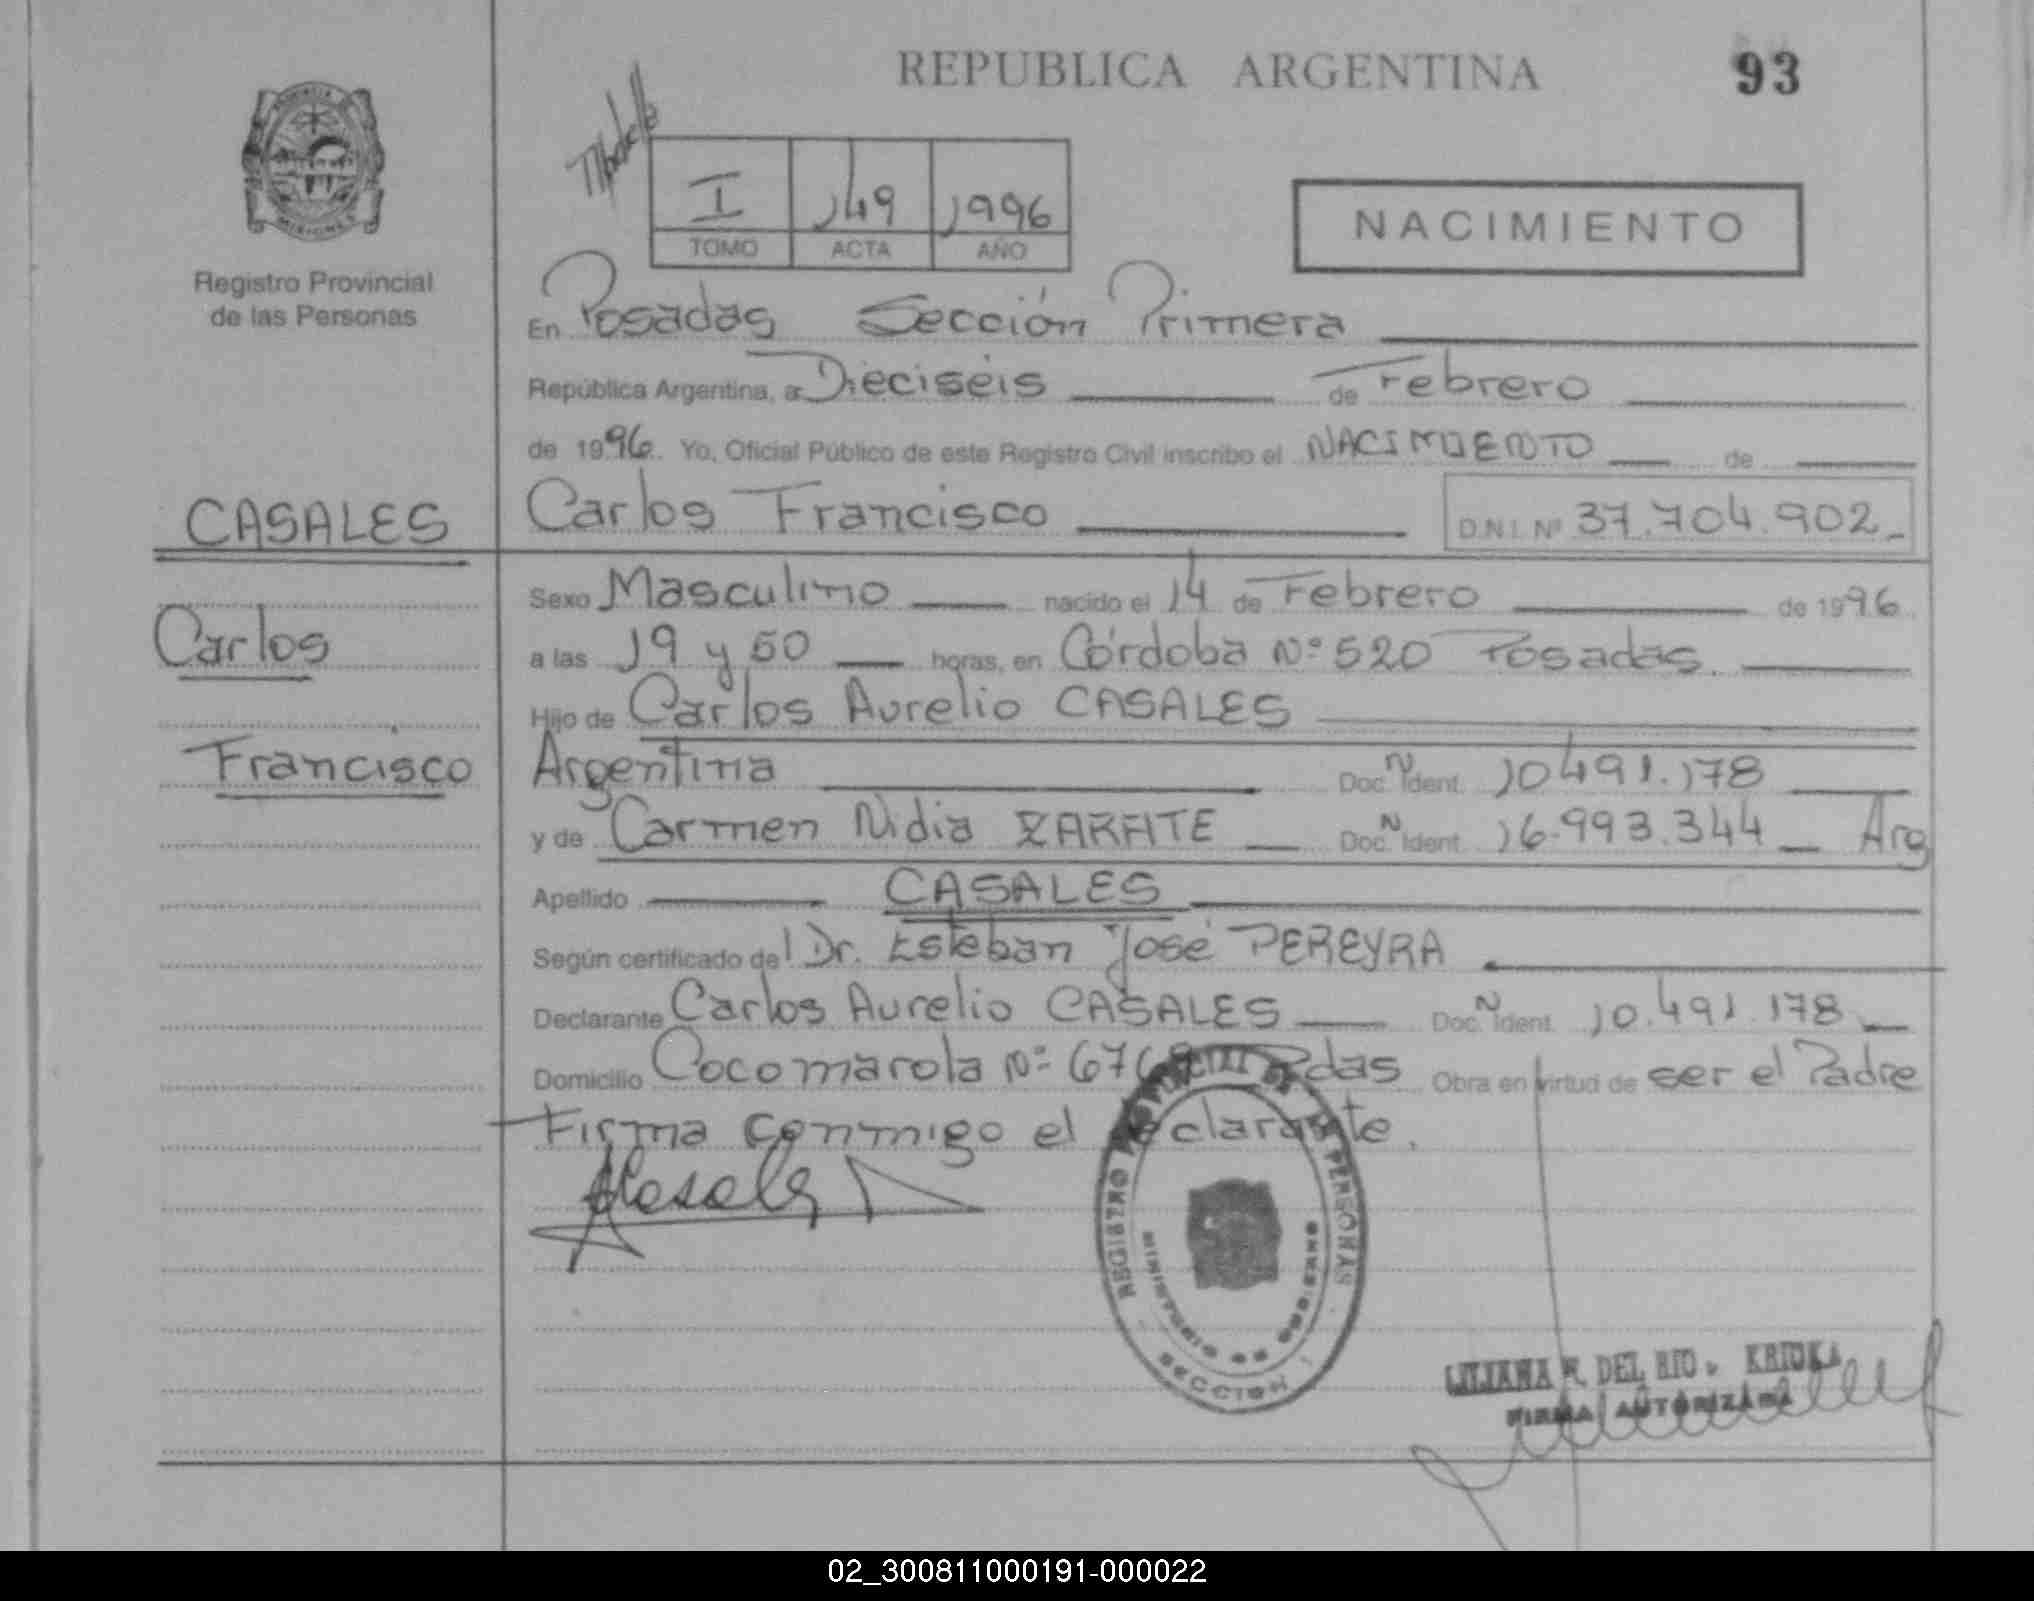 REPUBLICA ARGENTINA 93
I 149 1996
TOMO ACTA AÑO
NACIMIENTO
Registro Provincial
de las Personas
En Posadas Sección Primera
República Argentina, a Dieciséis de Febrero
de 1996. Yo, Oficial Público de este Registro Civil inscribo el NACIMIENTO de
CASALES Carlos Francisco D.N.I. Nº 37.704.902
Sexo Masculino nacido el 14 de Febrero de 1996
Carlos a las 19 y 50 horas, en Córdoba Nº 520 Posadas.
Hijo de Carlos Aurelio CASALES
Francisco Argentina Doc. N Ident. 10491.178
y de Carmen Nidia ZARATE Doc. N Ident. 16.993.344 Arg
Apellido CASALES
Según certificado del Dr. Esteban José PEREYRA
Declarante Carlos Aurelio CASALES Doc. N Ident. 10.491.178
Domicilio Cocomarola Nº Pdas Obra en virtud de ser el Padre
Firma conmigo el declarante.
REGISTRO PROVINCIAL DE LAS PERSONAS
MINISTERIO DE GOBIERNO
SECCION 1
LILIANA R. DEL RIO KRIUKA
FIRMA AUTORIZADA
02_300811000191-000022